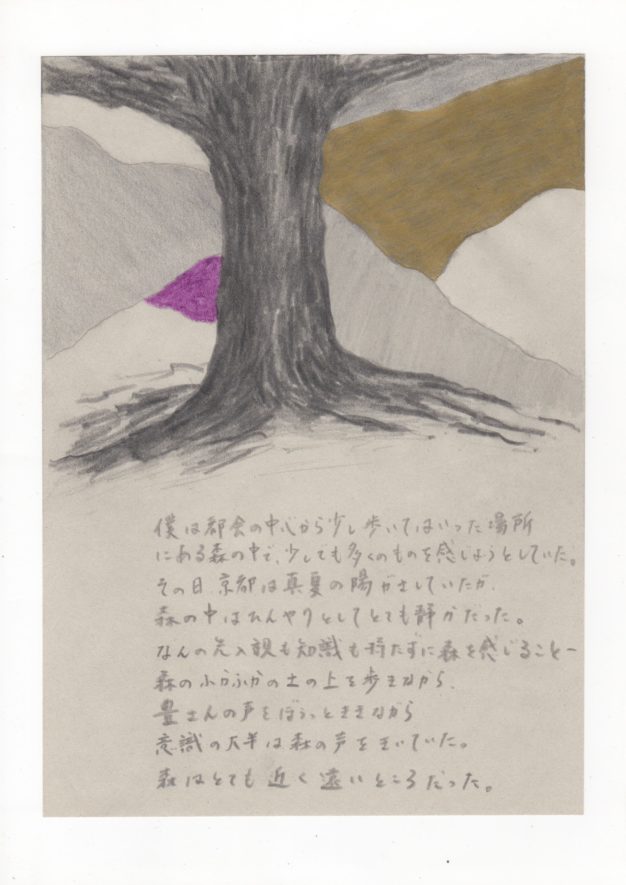 僕は都会の中心から少し歩いてはいった場所
にある森の中で、少しでも多くのものを感じようとしていた。
その日、京都は真夏の陽がさしていたが、
森の中はひんやりとしてとても静かだった。
なんの先入観も知識も持たずに森を感じること―
森のふかふかの土の上を歩きながら、
豊さんの声をぼうっとききながら
意識の大半は森の声をきいていた。
森はとても近く遠いところだった。